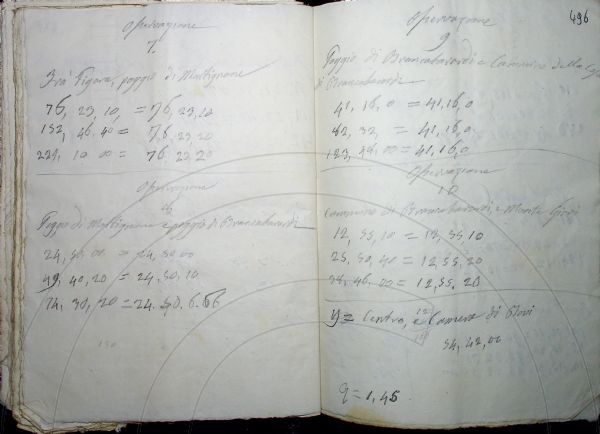 Osservazione
7.
Frà Figara, poggio di Martignone
76, 23, 10, = 76, 23, 10
152, 46, 40 = 76, 23, 20
229, 10 00 = 76, 23 20
Osservazione
8
Poggio di Martignone e poggio di Brancabarardi
24, 50, 00 = 24, 50, 00
49, 40, 20 = 24, 50, 10.
74, 30, 20 = 24. 50. 6. 66
150
496
Osservazione
9
Poggio di Brancabarardi e Cammino della
di Brancabarardi
41, 16, 0 = 41, 16, 0
82, 32, = 41, 16, 0.
123, 48, 00 = 41, 16, 0
Osservazione
10
Cammino di Brancabarardi, e Monte Giovi
12, 55, 10 = 12, 55, 10
25, 50, 40 = 12, 55, 20
38, 46, 00 = 12, 55, 20
y = Centro, e Camera di Giovi
54, 42, 00
q = 1, 45